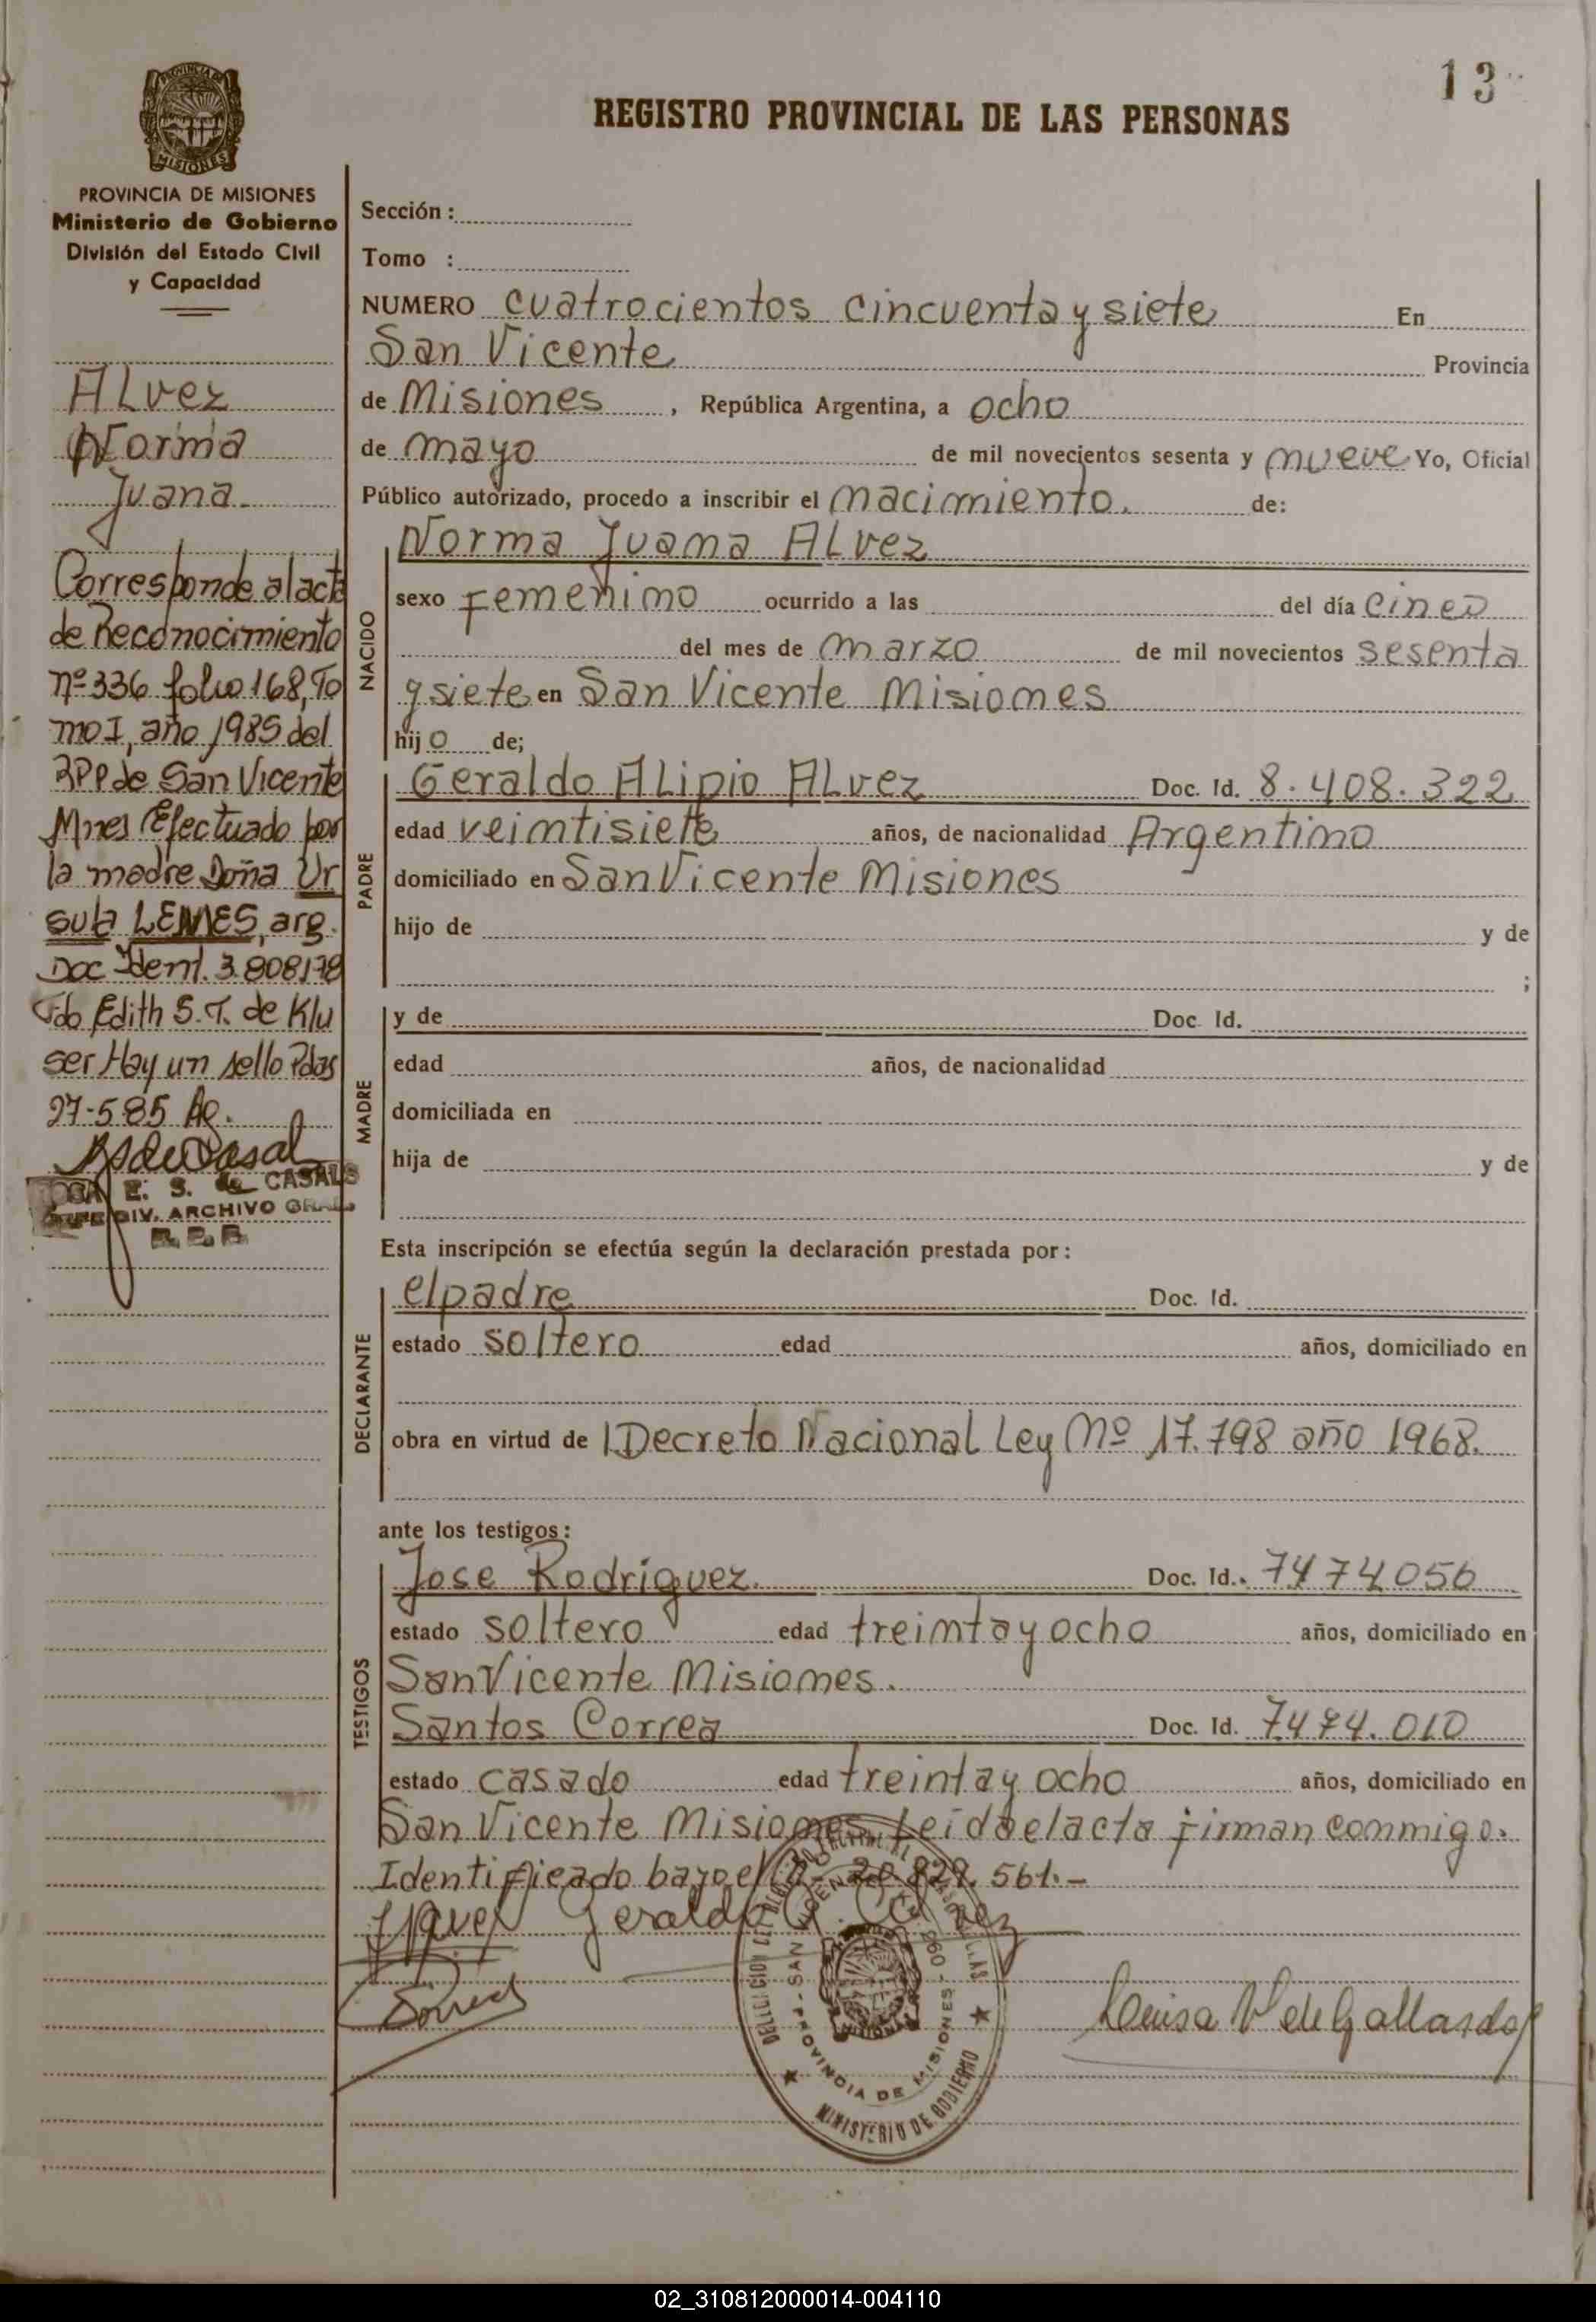 13
REGISTRO PROVINCIAL DE LAS PERSONAS
PROVINCIA DE MISIONES
Ministerio de Gobierno
División del Estado Civil
y Capacidad
ALvez
Norma
Juana
Corresponde al acta
de Reconocimiento
nº 336 folio 168, To
mo I, año 1985 del
RPP de San Vicente
Mnes Efectuado por
la madre Doña Ur
sula LEMES, arg.
Doc Ident. 3.808178
Fdo Edith S. T. de Klu
ser Hay un sello Pdas
27-5-85 Ag.
E. S. de CASALS
JEFE DIV. ARCHIVO GRAL
R. P. P.
Sección :
Tomo :
NUMERO cuatrocientos cincuenta y siete En
San Vicente Provincia
de Misiones , República Argentina, a ocho
de mayo de mil novecientos sesenta y nueve Yo, Oficial
Público autorizado, procedo a inscribir el nacimiento. de:
NACIDO
Norma Juana ALvez
sexo Femenino ocurrido a las del día cinco
del mes de marzo de mil novecientos sesenta
y siete en San Vicente Misiones
hij o de;
PADRE
Geraldo ALipio ALvez Doc. Id. 8.408.322
edad veintisiete años, de nacionalidad Argentino
domiciliado en San Vicente Misiones
hijo de y de
;
MADRE
y de Doc. Id.
edad años, de nacionalidad
domiciliada en
hija de y de
Esta inscripción se efectúa según la declaración prestada por :
DECLARANTE
el padre Doc. Id.
estado soltero edad años, domiciliado en
obra en virtud de Decreto Nacional Ley Nº 17.798 año 1968.
ante los testigos :
TESTIGOS
Jose Rodriguez. Doc. Id. 7474056
estado soltero edad treinta y ocho años, domiciliado en
San Vicente Misiones.
Santos Correa Doc. Id. 7474.010
estado casado edad treinta y ocho años, domiciliado en
San Vicente Misiones Leída el acta firman conmigo.
Identificado bajo el nº 20.829.561.-
Geraldo A. Alvez
Luisa V de Gallardo
SAN VICENTE
PROVINCIA DE MISIONES
MINISTERIO DE GOBIERNO
02_310812000014-004110